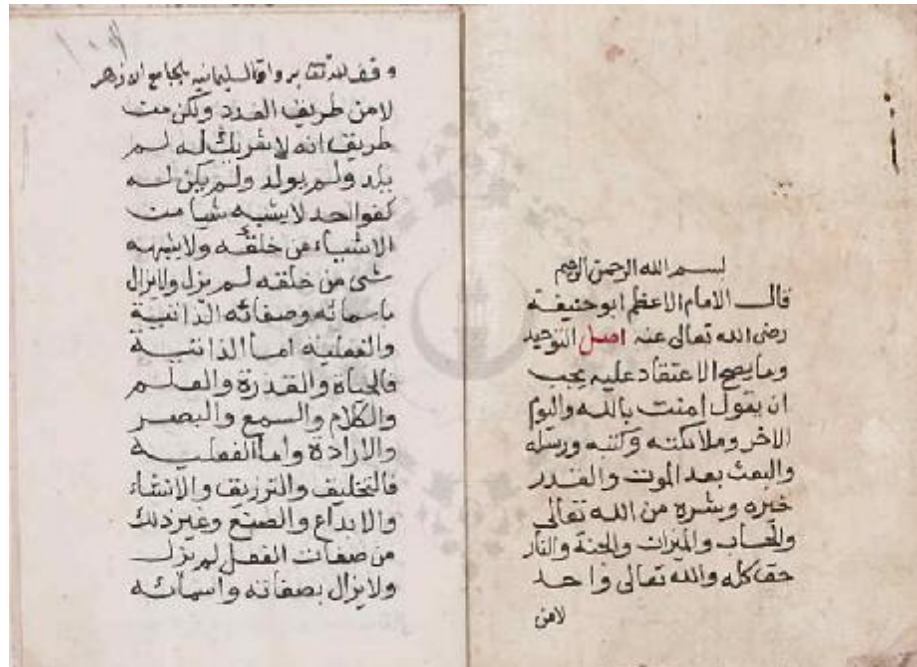 بسم الله الرحمن الرحيم
قال الامام الاعظم ابوحنيفة
رضى الله تعالى عنه اصل التوحيد
وما يصح الاعتقاد عليه يجب
ان يقول امنت بالله واليوم
الاخر وملائكته وكتبه ورسله
والبعث بعد الموت والقدر
خيره وشره من الله تعالى
والحساب والميزان والجنة والنار
حق كله والله تعالى واحد
لامن
وقف لله تعالى برواق السليمانيه بالجامع الازهر
لامن طريق العدد ولكن من
طريق انه لاشريك له لم
يلد ولم يولد ولم يكن له
كفوا احد لايشبه شيا من
الاشياء من خلقه ولايشبهه
شئ من خلقه لم يزل ولايزال
باسمائه وصفاته الذاتية
والفعليه اما الذاتية
فالحياة والقدرة والعلم
والكلام والسمع والبصر
والارادة واما الفعلية
فالتخليق والترزيق والانشاء
والابداع والصنع وغيرذلك
من صفات الفعل لم يزل
ولايزال بصفاته واسمائه